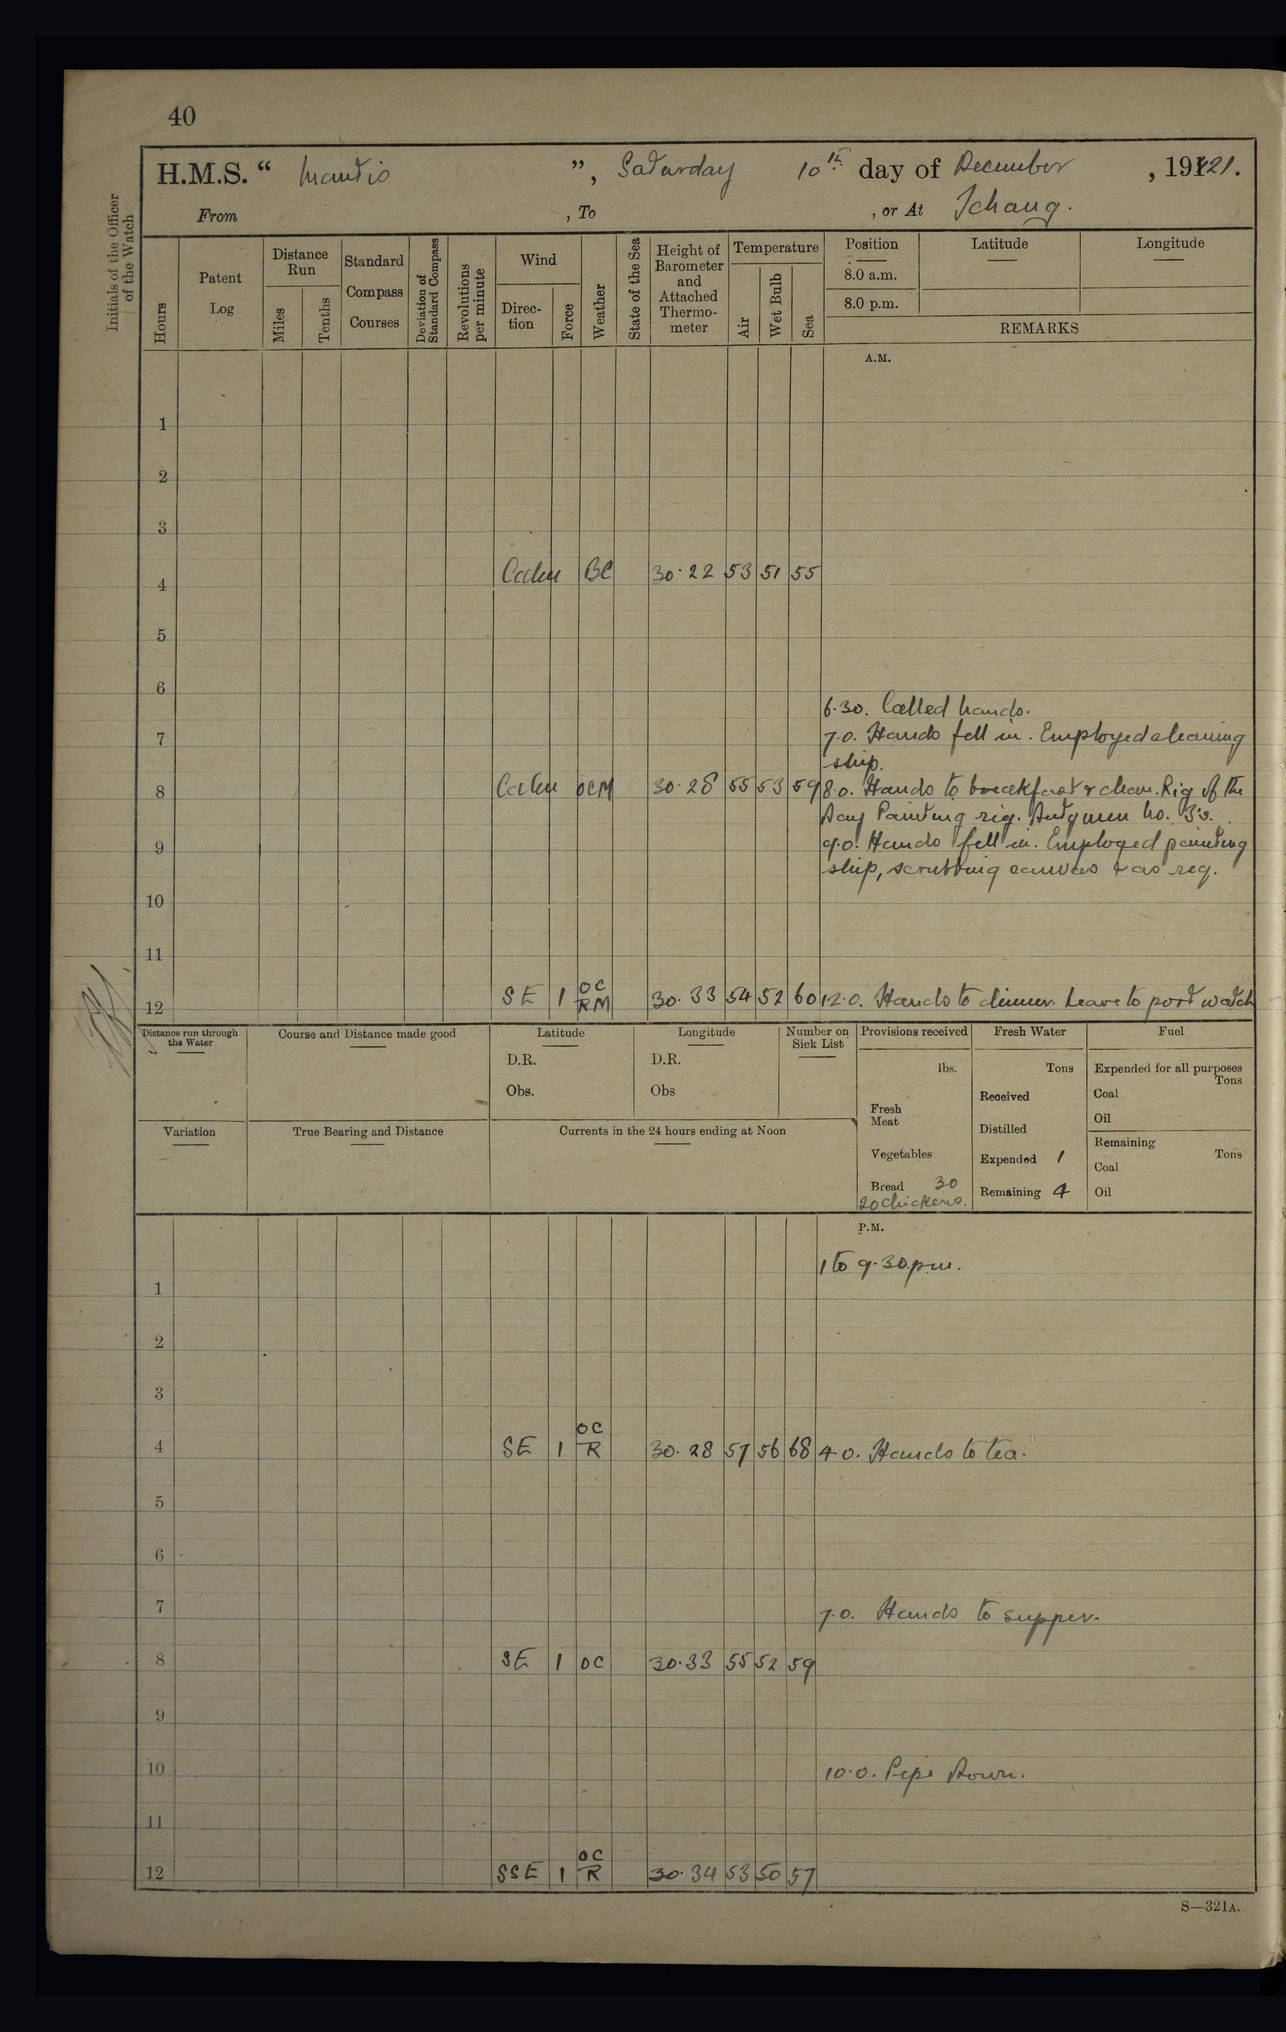 40
H.M.S. " Mantis ", Saturday 10th day of December, 1921.
From , To , or At Ichang.
Initials of the Officer of the Watch
Hours
Patent Log
Distance Run
Miles
Tenths
Standard Compass Courses
Deviation of Standard Compass
Revolutions per minute
Wind
Direction
Force
Weather
State of the Sea
Height of Barometer and Attached Thermometer
Temperature
Air
Wet Bulb
Sea
Position
8.0 a.m.
8.0 p.m.
Latitude
Longitude
REMARKS
A.M.
1
2
3
4 Calm BC 30.22 53 51 55
5
6
6.30. Called hands.
7 7.0. Hands fell in. Employed cleaning
ship.
8 Calm OCM 30.28 55 53 59 8.0. Hands to breakfast & clean. Rig of the
Day Painting rig. Dutymen No. 3's.
9 9.0. Hands fell in. Employed painting
ship, scrubbing canvas & as req.
10
11
12 SE 1 OC RM 30.33 54 52 60 12.0. Hands to dinner. Leave to port watch
Distance run through the Water
Course and Distance made good
Latitude
D.R.
Obs.
Longitude
D.R.
Obs
Number on Sick List
Provisions received
lbs.
Fresh Meat
Vegetables
Bread 30
20 chickens.
Fresh Water
Tons
Received
Distilled
Expended 1
Remaining 4
Fuel
Expended for all purposes
Tons
Coal
Oil
Remaining
Tons
Coal
Oil
Variation
True Bearing and Distance
Currents in the 24 hours ending at Noon
P.M.
1 to 9.30 p.m.
1
2
3
4 SE 1 OC R 30.28 57 56 68 4.0. Hands to tea.
5
6
7 7.0. Hands to supper.
8 SE 1 OC 30.33 55 52 59
9
10 10.0. Pipe Down.
11
12 SSE 1 OC R 30.34 53 50 57
S—321A.